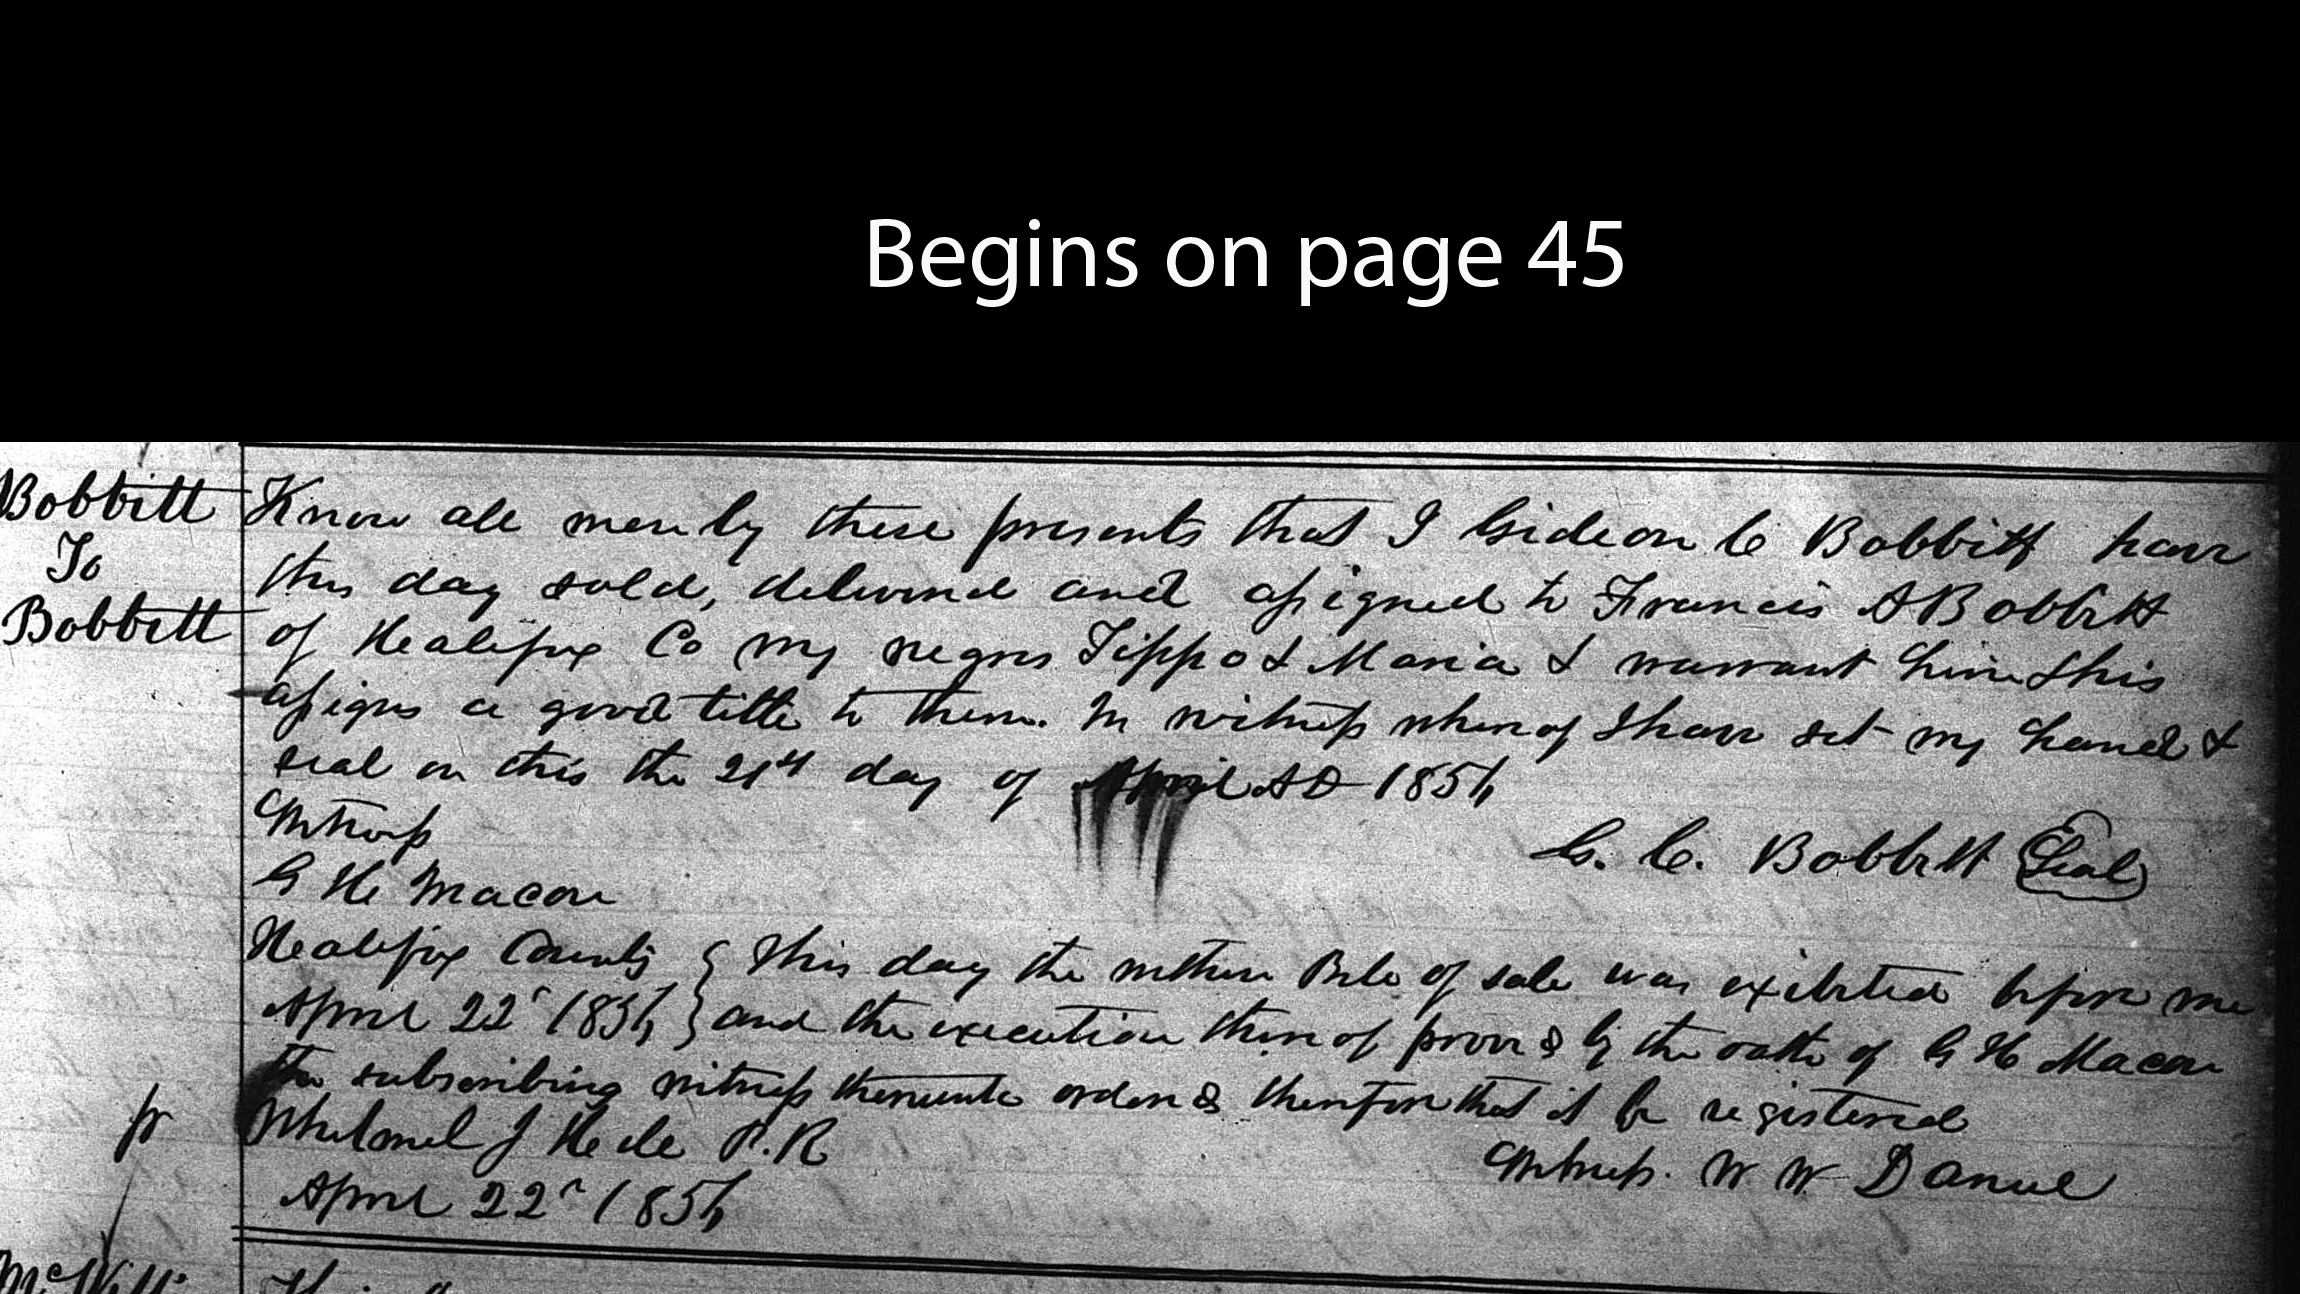 Begins on page 45
Bobbitt
To
Bobbett
Know all men by these presents that I Gideon C Bobbitt have
this day sold, delivered and assigned to Francis A Bobbitt
of Halifax Co my negros Tippo & Maria & warrant him & his
assigns a good title to them. In witness whereof I have set my hand &
seal on this the 21st day of April AD 1854
Witness
G. C. Bobbitt Seal
G H Macon
Halifax County } This day the within Bill of sale was exibited before me
April 22d 1854 } and the execution thereof proved by the oath of G H Macon
the subscribing witness thereunto ordered therefore that it be registered
Whelmel J Hill P.R
Witness. W W Daniel
April 22d 1854